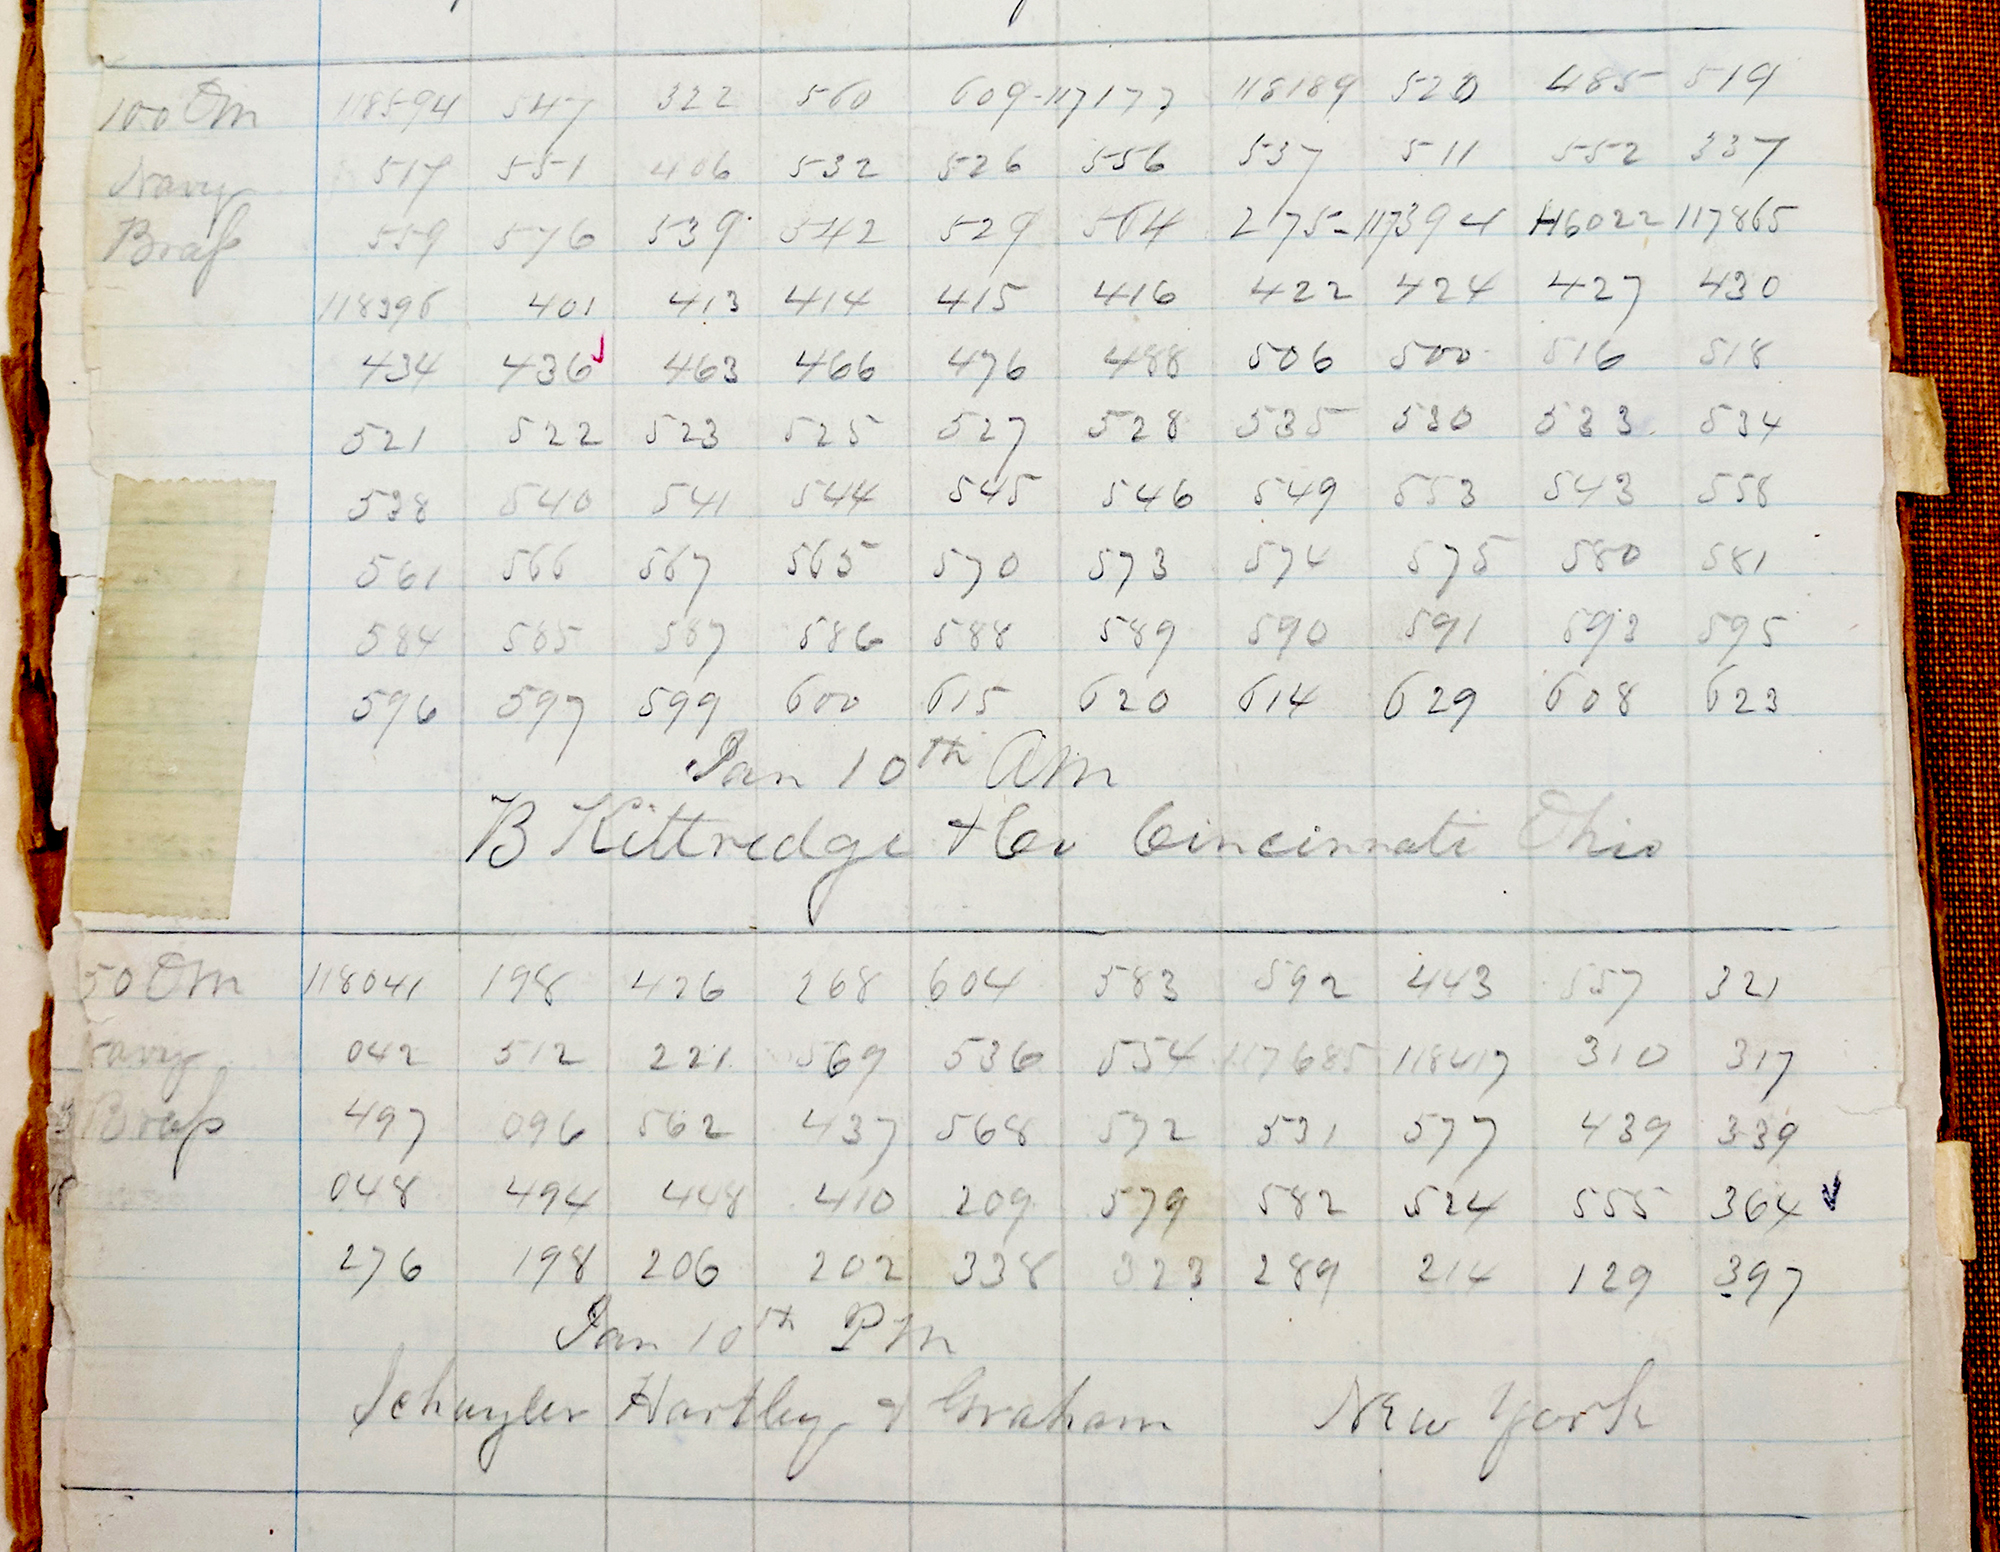 100 OM 118594 547 322 560 609 - 117177 118189 520 485 519
Navy 517 551 406 532 526 556 537 511 552 337
Brass 559 576 539 542 529 564 275 - 117394 116022 117865
118396 401 413 414 415 416 422 424 427 430
434 436 463 466 476 488 506 500 516 518
521 522 523 525 527 528 535 530 533 534
538 540 541 544 545 546 549 553 543 558
561 566 567 565 570 573 574 575 580 581
584 585 587 586 588 589 590 591 593 595
596 597 599 600 615 620 614 629 608 623
Jan 10th AM
B Kittredge & Co Cincinnati Ohio
50 OM 118041 198 426 268 604 583 592 443 557 321
Navy 042 512 221 569 536 554 117685 118417 310 317
Brass 497 096 562 437 568 572 531 577 439 339
048 494 448 410 209 579 582 524 555 364
276 198 206 202 338 323 289 214 129 397
Jan 10th PM
Schuyler Hartley & Graham New York